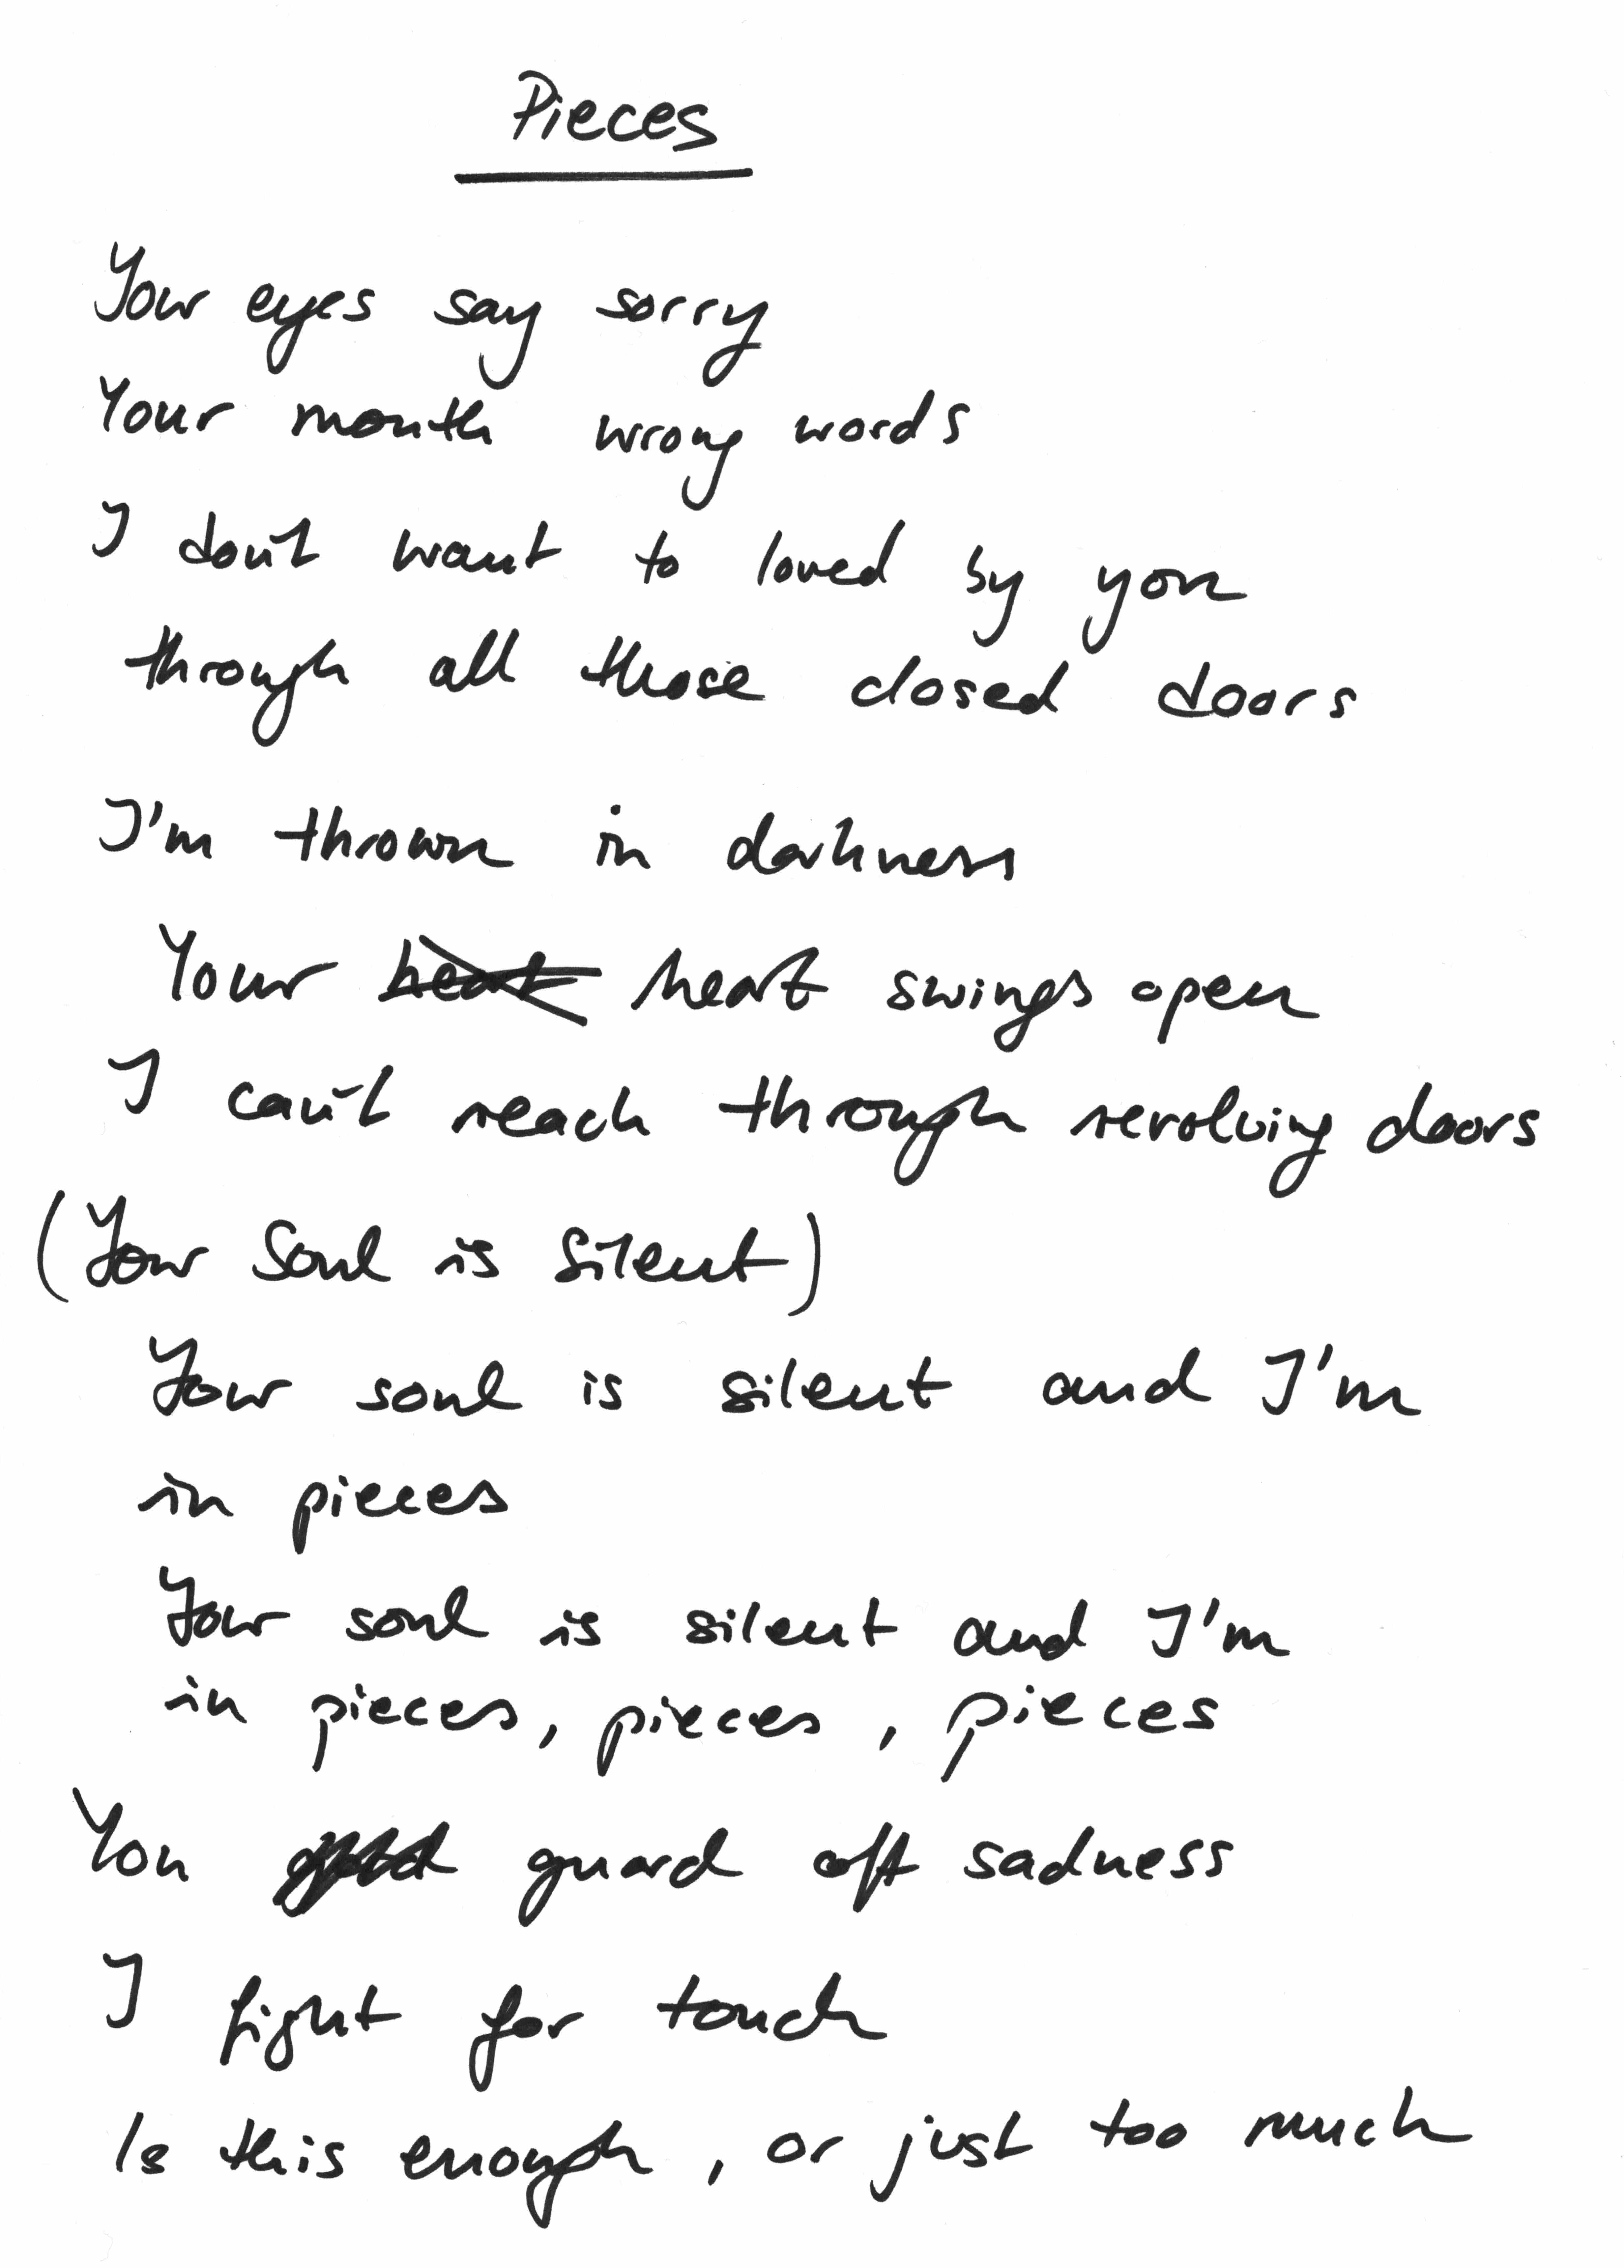 Pieces
Your eyes say sorry
Your mouth wrong words
I don't want to loved by you
through all those closed doors
I'm thrown in darkness
Your heart heart swings open
I can't reach through revolving doors
(Your Soul is Silent)
Your soul is silent and I'm
in pieces
Your soul is silent and I'm
in pieces, pieces, pieces
You guard off sadness
I fight for touch
Is this enough, or just too much